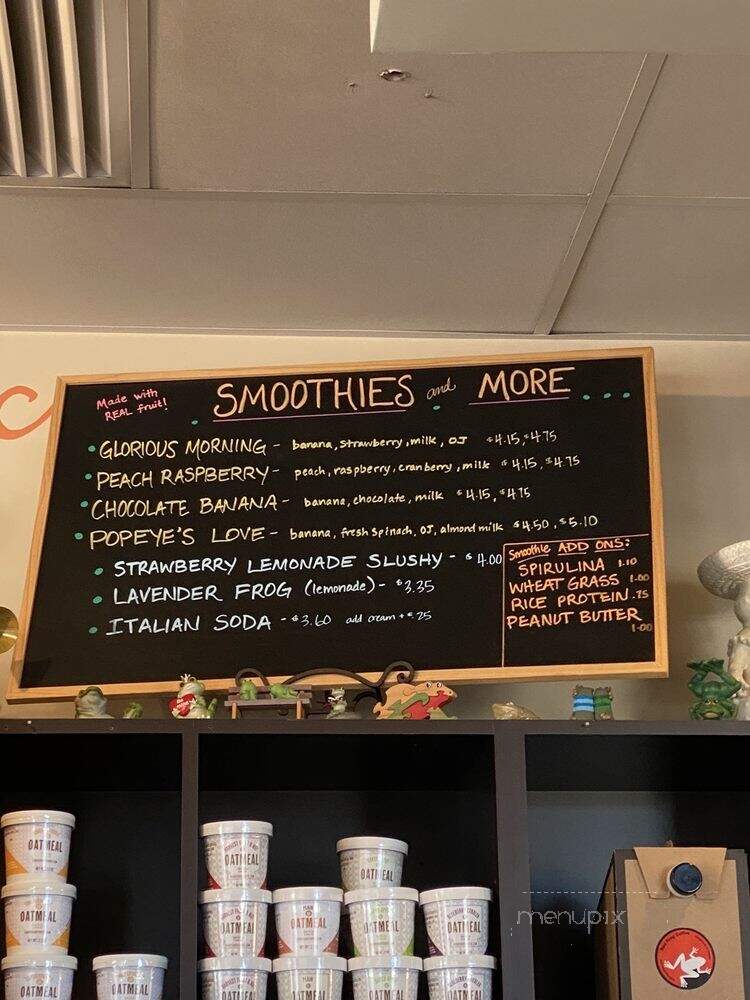 Made with
REAL fruit!
SMOOTHIES and MORE ...
• GLORIOUS MORNING - banana, strawberry, milk, OJ $4.15, $4.75
• PEACH RASPBERRY - peach, raspberry, cranberry, milk $4.15, $4.75
• CHOCOLATE BANANA - banana, chocolate, milk $4.15, $4.75
• POPEYE'S LOVE - banana, fresh spinach, OJ, almond milk $4.50, $5.10
• STRAWBERRY LEMONADE SLUSHY - $4.00
• LAVENDER FROG (lemonade) - $3.35
• ITALIAN SODA - $3.60 add cream + $.25
Smoothie ADD ONS:
SPIRULINA 1.10
WHEAT GRASS 1.00
RICE PROTEIN .75
PEANUT BUTTER
1.00
OATMEAL
OATMEAL
OATMEAL
OATMEAL
OATMEAL
OATMEAL
OATMEAL
OATMEAL
OATMEAL
OATMEAL
OATMEAL
OATMEAL
OATMEAL
OATMEAL
menupix